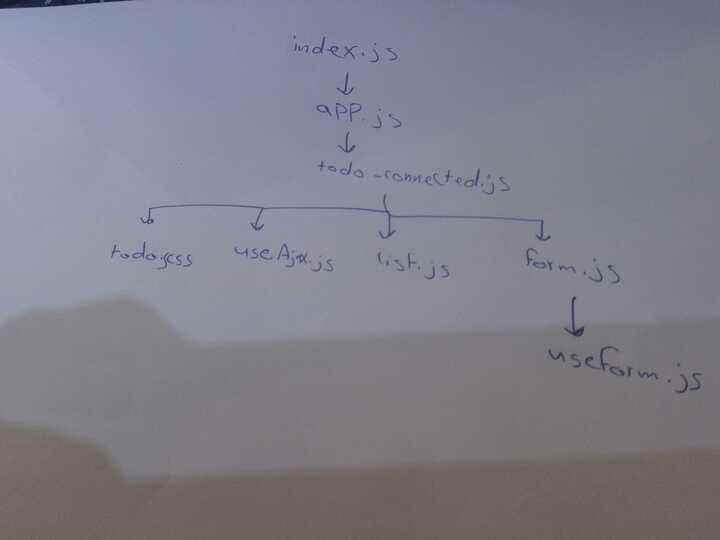 index.js
app.js
todo-connected.js
todo.scss
useAjax.js
list.js
form.js
useform.js